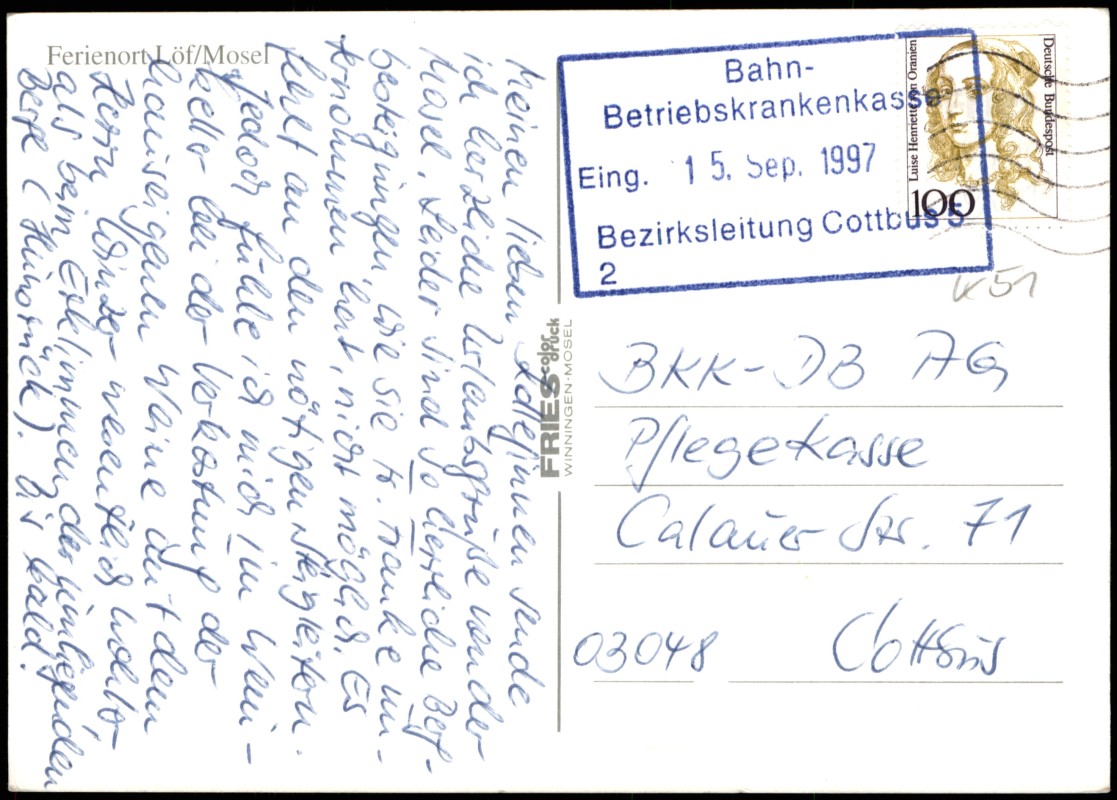 Ferienort Löf/Mosel
Meinen lieben Kolleginnen sende
ich herzliche Urlaubsgrüße von der
Mosel. Leider sind so herrliche Berg-
besteigungen, wie sie Fr. Franke un-
ternommen hat, nicht möglich. Es
fehlt an den nötigen Steigleitern.
Jedoch fühle ich mich im Wein-
keller bei der Verkostung der
hauseigenen Weine mit dem
Herrn Winzer wesentlich wohler
als beim Erklimmen der umliegenden
Berge (Hunsrück). Bis bald!
FRIES color druck
WINNINGEN-MOSEL
Bahn-
Betriebskrankenkasse
Eing. 15. Sep. 1997
Bezirksleitung Cottbus 5
2
Luise Henriette von Oranien
Deutsche Bundespost
100
K51
BKK-DB AG
Pflegekasse
Calauer Str. 71
03048 Cottbus